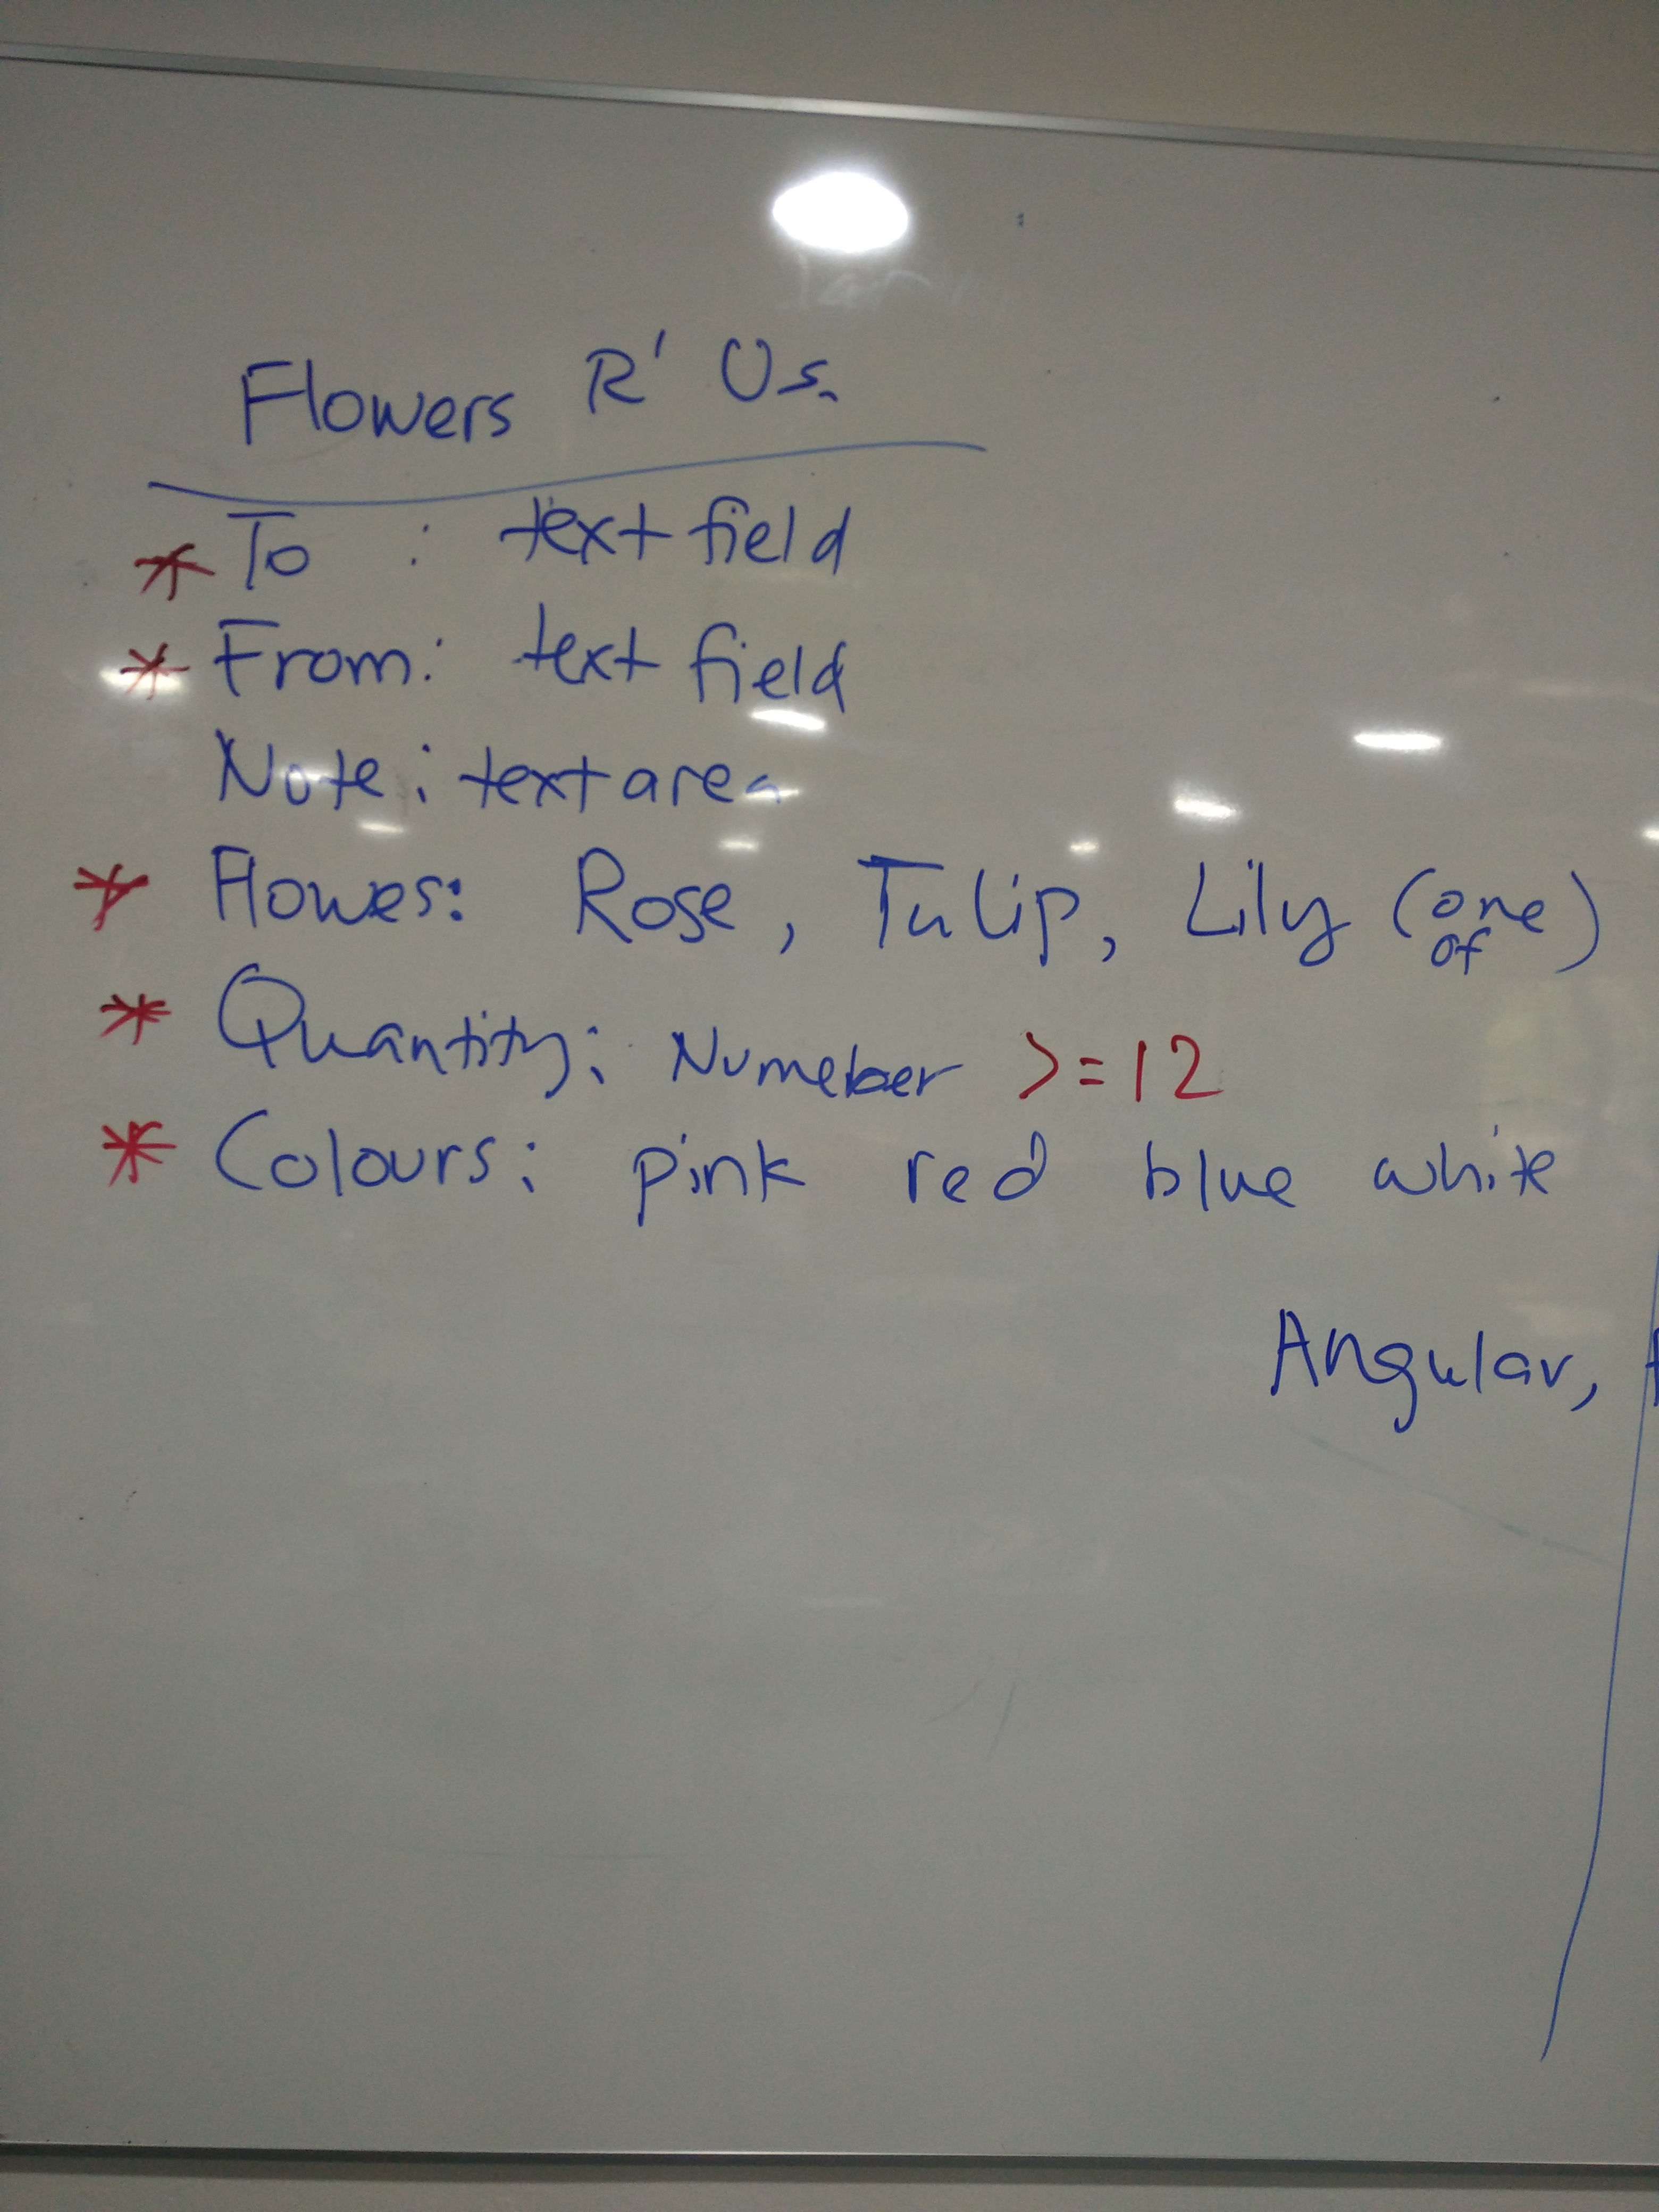 Flowers R' Us.
* To : text field
* From: text field
Note: textarea
* Flowes: Rose, Tulip, Lily (one of)
* Quantity: Numeber >=12
* Colours: pink red blue white
Angular,